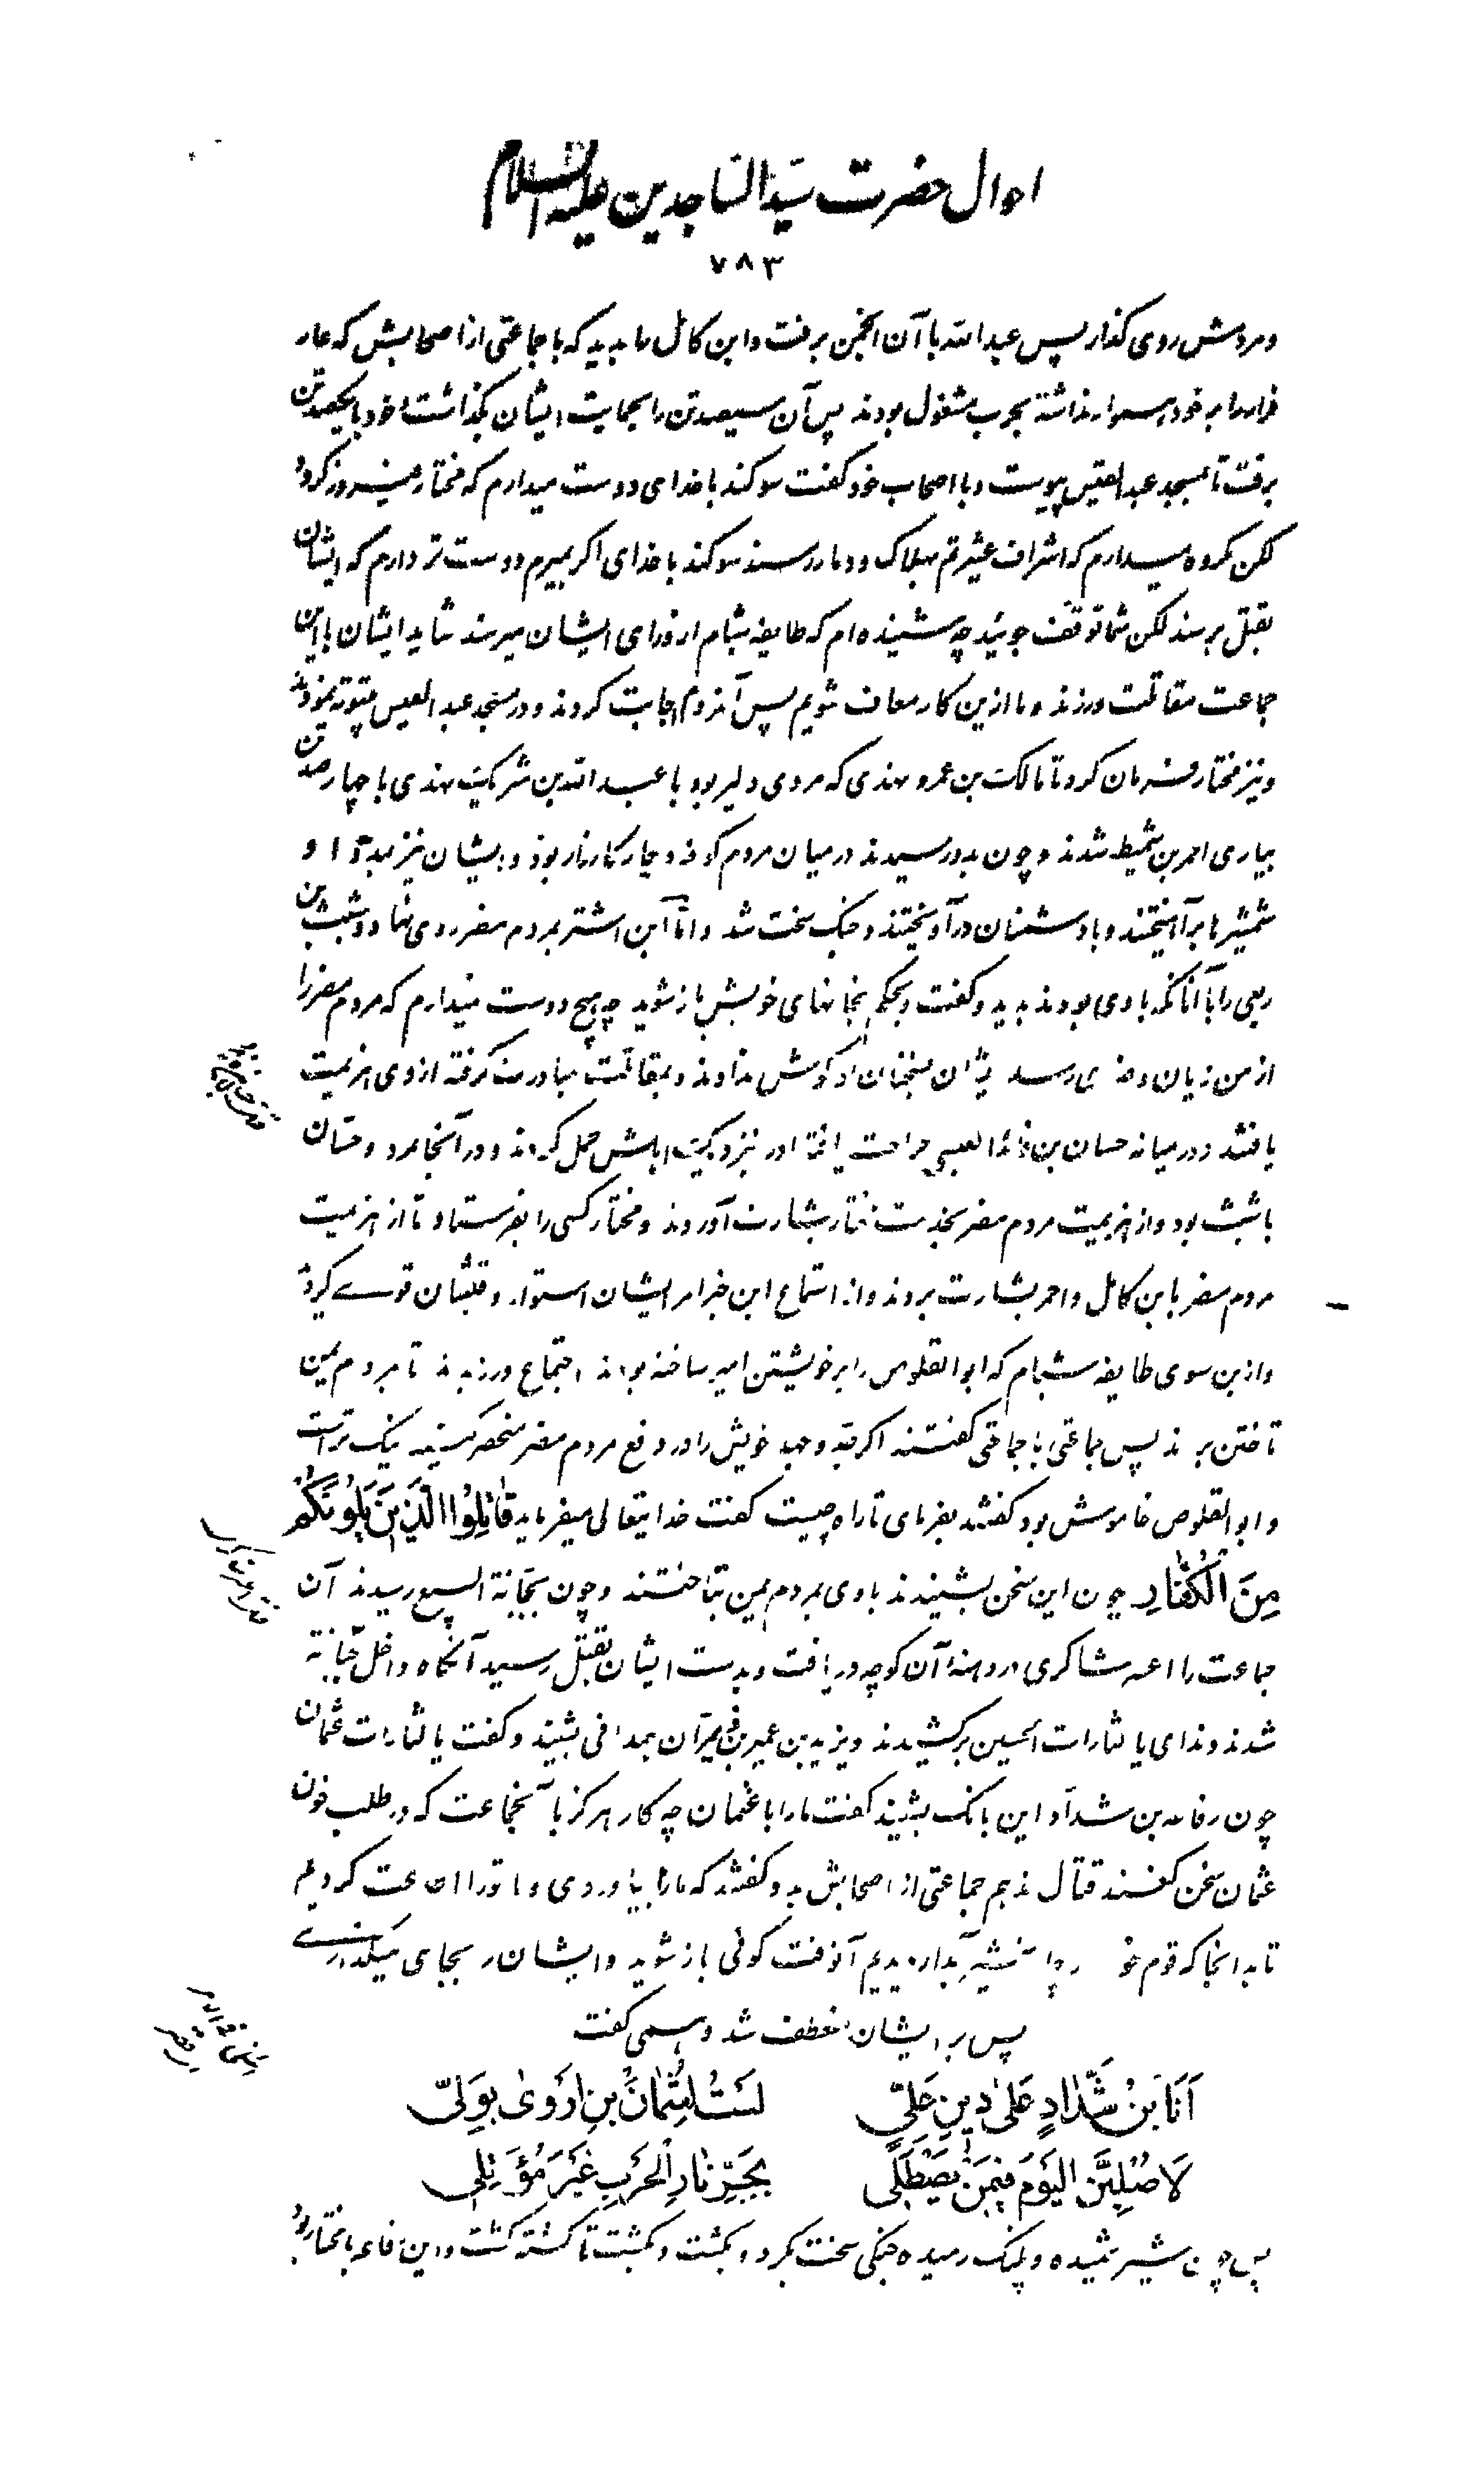 احوال حضرت سیّد السّاجدین علیه السلام
۷۸۳
و مردمش روی کذار پس عبدالله با آن انجمن برفت و ابن کامل را بدید که با جماعتی از اصحابش که عار
فرار را بر خود هموار نداشته بحرب مشغول بودند پس آن سیصد تن را بحمایت ایشان بگذاشت و خود با یکصد تن
برفت تا بمسجد عبدالقیس پیوست و با اصحاب خود گفت سوکند با خدای دوست میدارم که مختار فیروز کردد
لکن مکروه میدارم که اشراف عشیرتم بهلاک و دمار رسند سوکند با خدای اکر بمیرم دوست تر دارم که ایشان
بقتل برسند لکن شما توقف جوئید چه شنیده ام که طایفه شبام از ورای ایشان میرسند شاید ایشان با این
جماعت مقاتلت ورزند و ما ازین کار معاف شویم پس آنمردم اجابت کردند و در مسجد عبدالقیس بیتوته نمودند
و نیز مختار فرمان کرد تا مالک بن عمرو نهدی که مردی دلیر بود با عبدالله بن شریک نهدی با چهار صد تن
بیاری احمر بن شمیط شدند و چون بدو رسیدند در میان مردم کوفه دچار کارزار بود و ایشان نیز
شمشیرها برآهیختند و با دشمنان درآویختند و جنک سخت شد و امّا ابن اشتر بمردم مضر روی نهاد و شبث بن
ربعی را با آنانکه با وی بودند بدید و گفت ویحکم بخانهای خویش باز شوید چه هیچ دوست نمیدارم که مردم مضر را
از من زیان و رسد ایشان بسخنان او کوش ندادند و بمقاتلت مبادرت گرفته از وی هزیمت
یافتند و در میانه حسان بن فائد العبسی جراحت یافته او را نزدیک اهلش حمل کردند و در آنجا بمرد و حسّان
با شبث بود و از هزیمت مردم مضر بخدمت مختار بشارت آوردند و مختار کسی را بفرستاد تا از هزیمت
مردم مضر بابن کامل و احمر بشارت بردند و از استماع این خبر امر ایشان استوار و قلبشان قوی کردید
و ازین سوی طایفه شبام که ابو القلوص را بر خویشتن امیر ساخته بودند اجتماع ورزیدند تا بمردم یمن
تاختن برند پس جماعتی با جماعتی گفتند اکر جد و جهد خویش را در دفع مردم مضر منحصر کنیم نیک تر است
و ابو القلوص خاموش بود گفتند بفرمای تا راه چیست گفت خدایتعالی میفرماید قاتِلُوا الَّذینَ یَلُونَکُمْ
مِنَ الْکُفّارِ چون این سخن بشنیدند با وی بمردم یمن بتاختند و چون بجبّانة السبیع رسیدند آن
جماعت را شاکری در دهنه آن کوچه دریافت و بدست ایشان بقتل رسید آنکاه داخل جبّانه
شدند و ندای یا لثارات الحسین برکشیدند و یزید بن عمیر بن ذی مرّان همدانی بشنید و گفت یا لثارات عثمان
چون رفاعه بن شدّاد این بانک بشنید گفت ما را با عثمان چه کار هرکز با آنجماعت که در طلب خون
عثمان سخن کنند قتال ندهم جماعتی از اصحابش بدو گفتند که ما را بیاوردی و ما تو را اطاعت کردیم
تا بدانجا که قوم خود را شمشیر آبدار دیدیم آنوقت کوئی باز شوید و ایشان را بجای میگذاری
پس بر ایشان منعطف شد و همی گفت
اَنَا ابْنُ شَدّادٍ عَلیٰ دینِ عَلِیّ لَسْتُ لِعُثْمانَ بْنِ اَرْویٰ بِوَلِیّ
لَاَصْلِیَنَّ الْیَوْمَ فیمَنْ یَصْطَلی بِحَرِّ نارِ الْحَرْبِ غَیْرَ مُؤْتَلی
پس چون شیر شمیده و پلنک رمیده جنگی سخت بکرد و بکشت و بکشت تا کشته کشت و این رفاعه با مختار بود